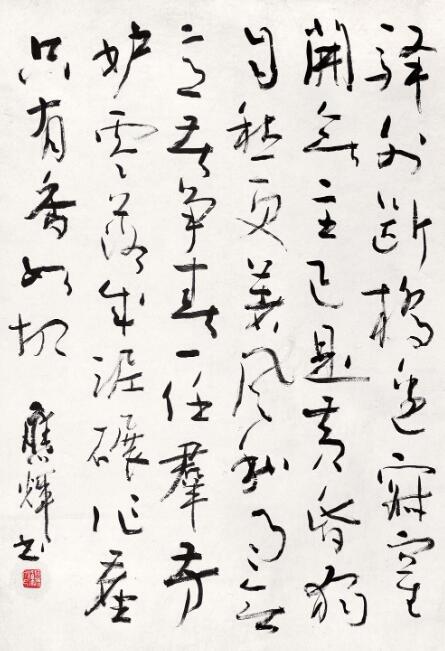 驛外斷橋邊寂寞
開無主已是黃昏獨
自愁更著風和雨無
意苦爭春一任羣芳
妒零落成泥碾作塵
只有香如故
應輝書